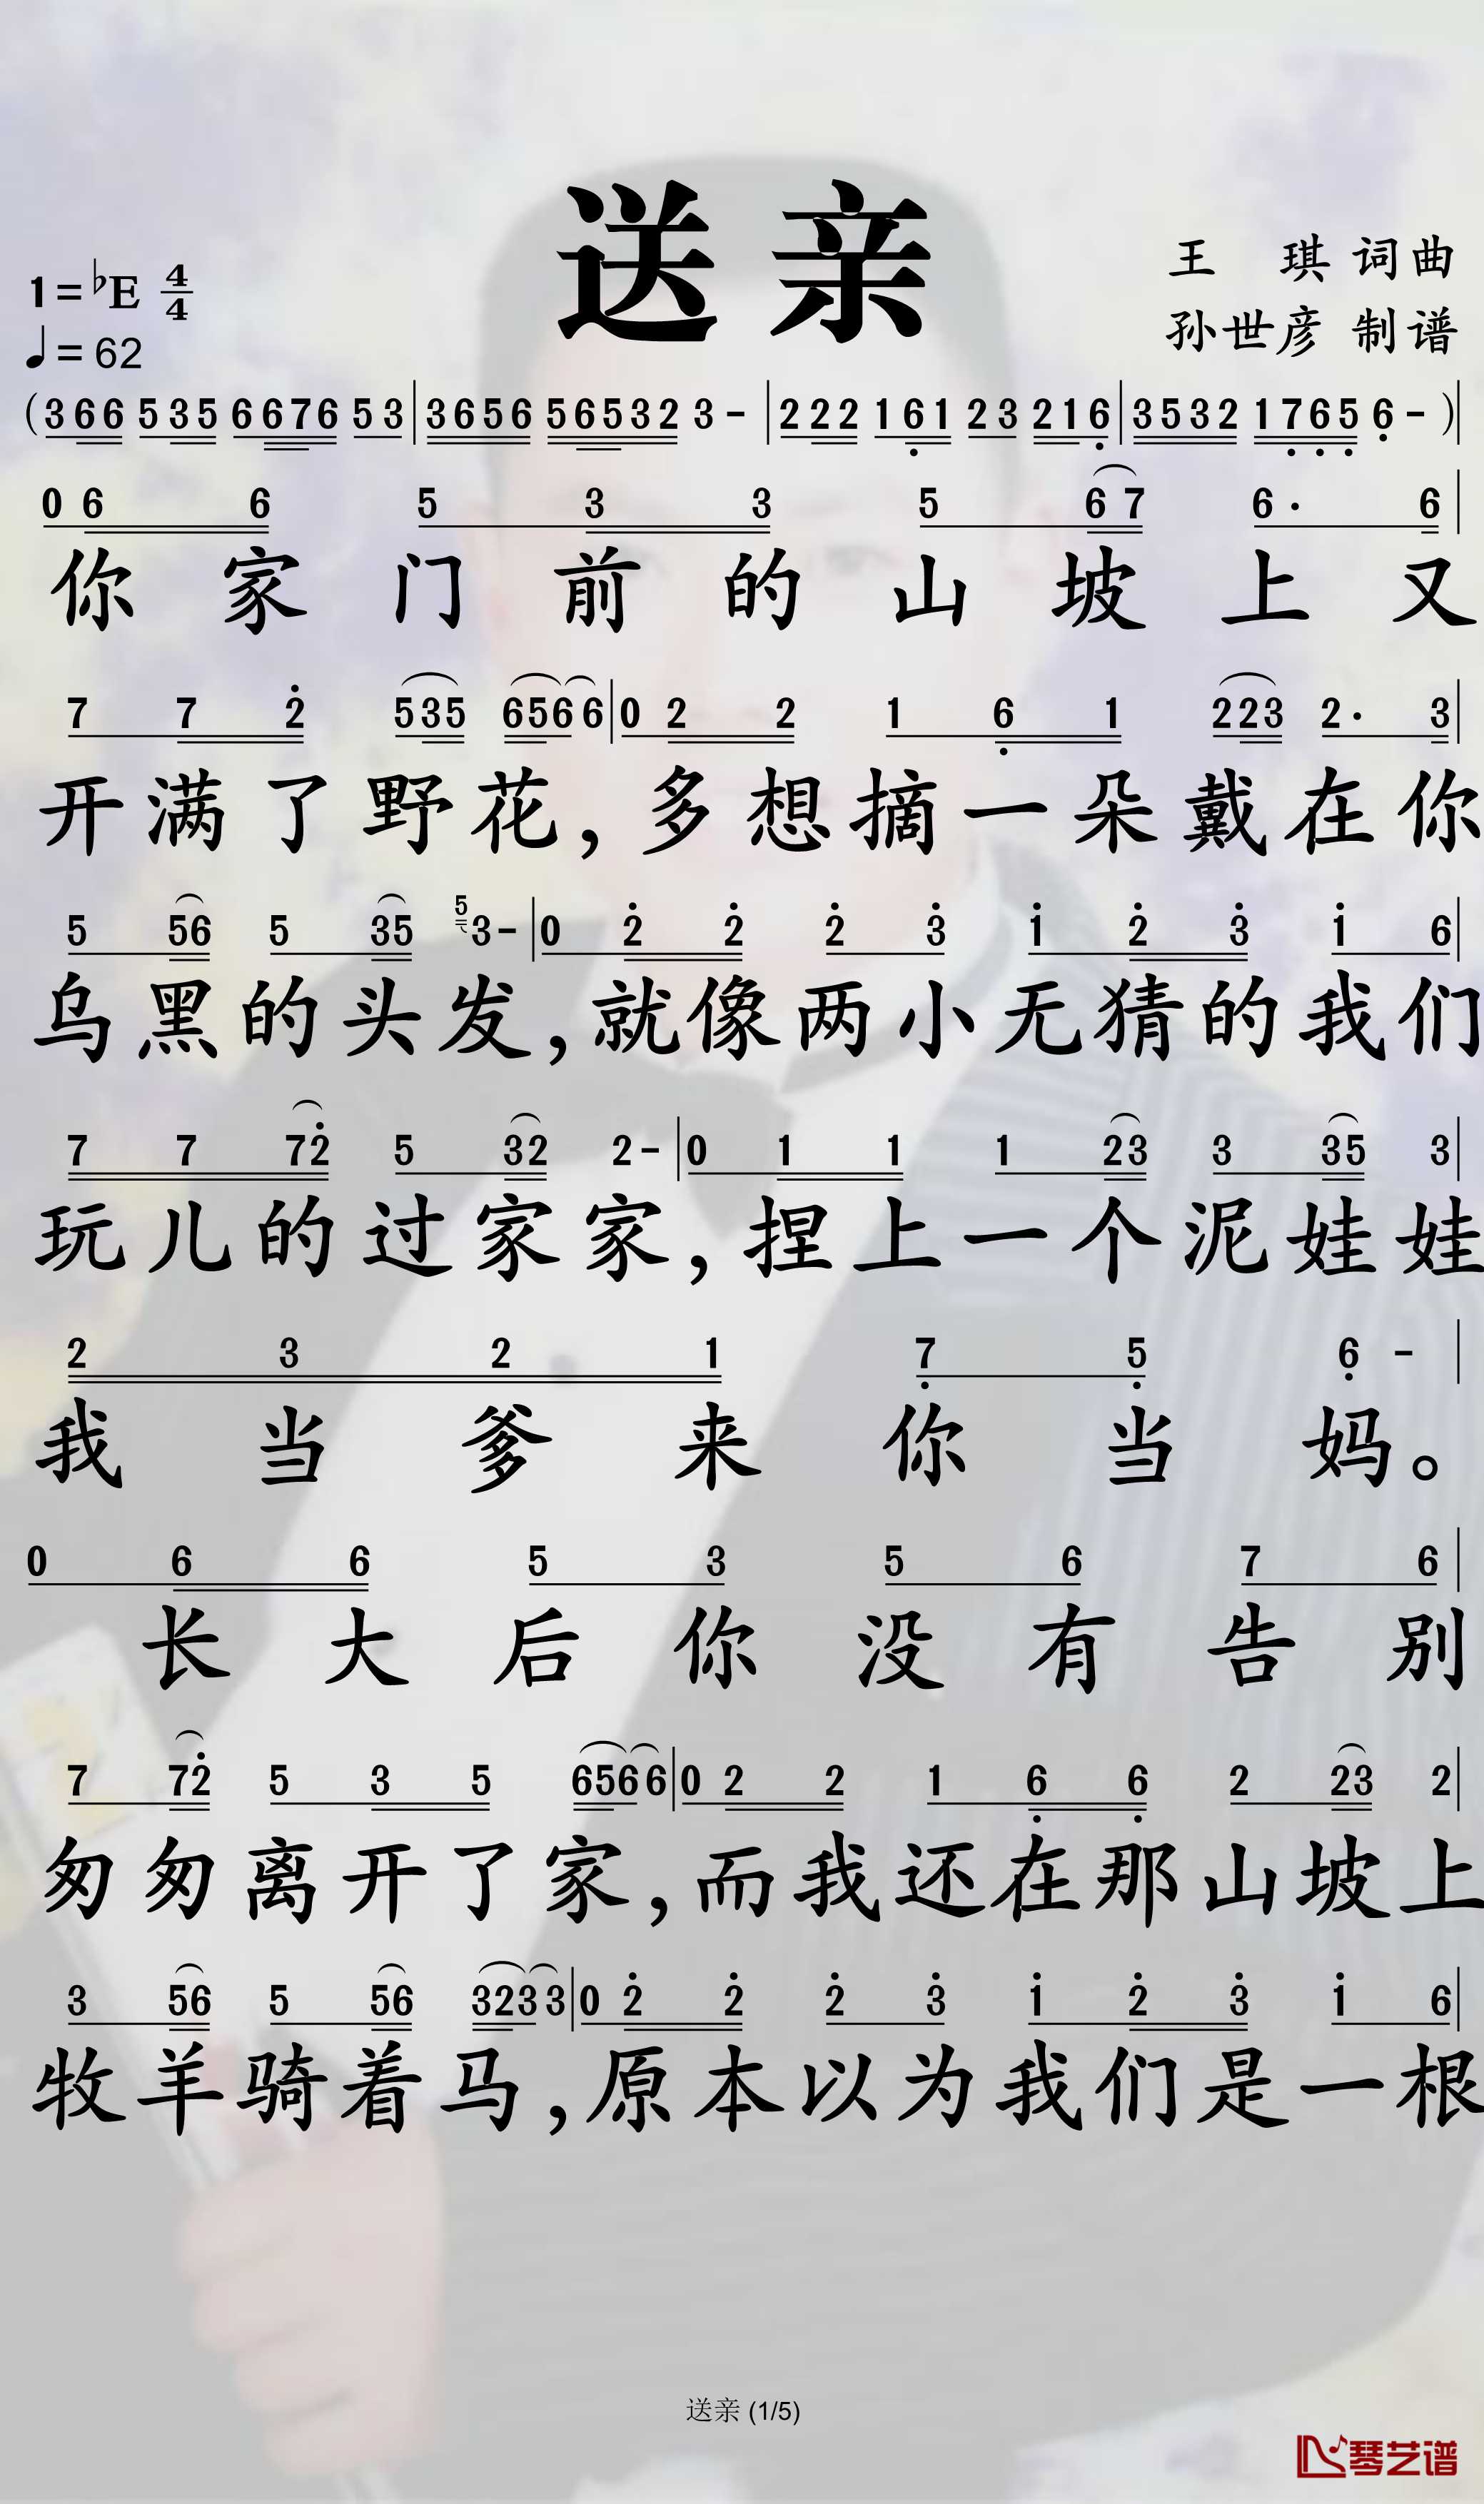 送亲
1=♭E 4/4
王 琪 词曲
♩=62
孙世彦 制谱
(366 535 6676 53|3656 56532 3-|222 161 23 216|3532 1765 6-)|
06 6 5 3 3 5 67 6· 6|
你家门前的山坡上又
7 7 2 535 6566|0 2 2 1 6 1 223 2· 3|
开满了野花，多想摘一朵戴在你
5 56 5 35 5 3-|0 2 2 2 3 1 2 3 1 6|
乌黑的头发，就像两小无猜的我们
7 7 72 5 32 2-|0 1 1 1 23 3 35 3|
玩儿的过家家，捏上一个泥娃娃
2 3 2 1 7 5 6 -|
我当爹来你当妈。
0 6 6 5 3 5 6 7 6|
长大后你没有告别
7 72 5 3 5 6566|0 2 2 1 6 6 2 23 2|
匆匆离开了家，而我还在那山坡上
3 56 5 56 3233|0 2 2 2 3 1 2 3 1 6|
牧羊骑着马，原本以为我们是一根
送亲 (1/5)
琴艺谱